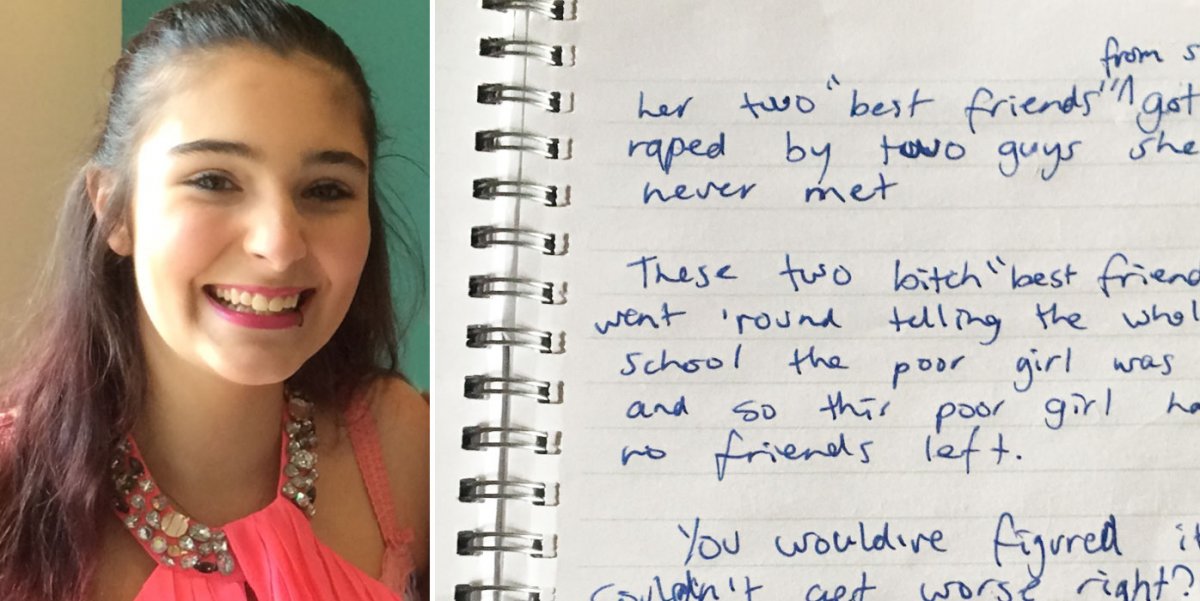 from s
her two "best friends" got
raped by two guys she
never met
These two bitch "best friend
went 'round telling the whol
school the poor girl was
and so this poor girl ha
no friends left.
You would've figured it
couldn't get worse right?